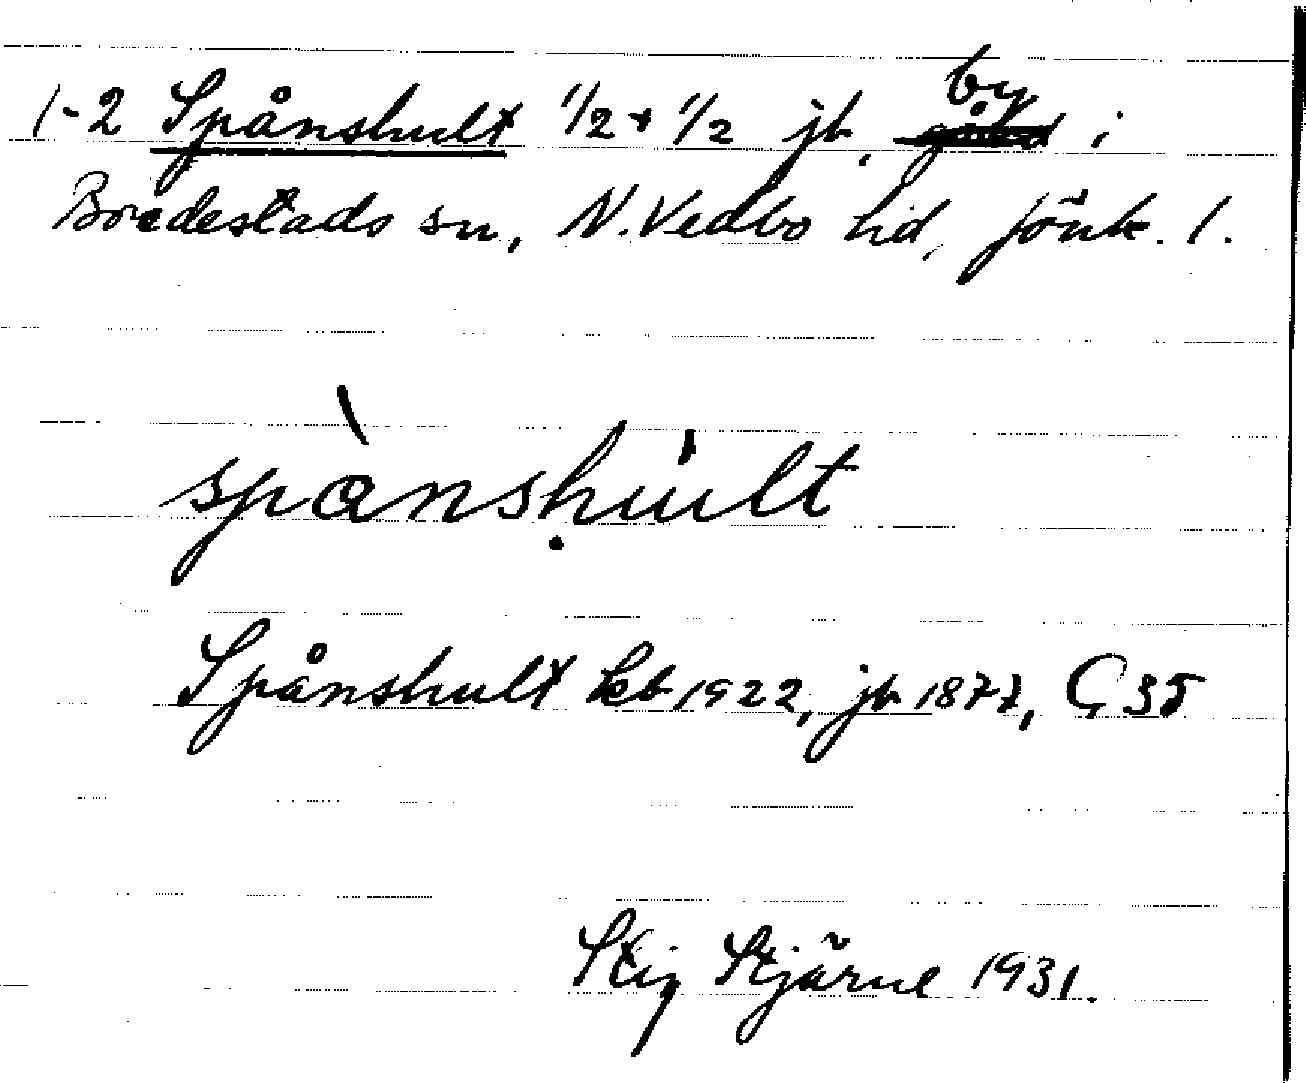 1-2 Spånshult 1/2 + 1/2 jb, by i
Bredestads sn, N. Vedbo hd, Jönk. l.
spànsḥu̍lt
Spånshult kb 1922, jb 1877, G 35
Stig Stjärne 1931.